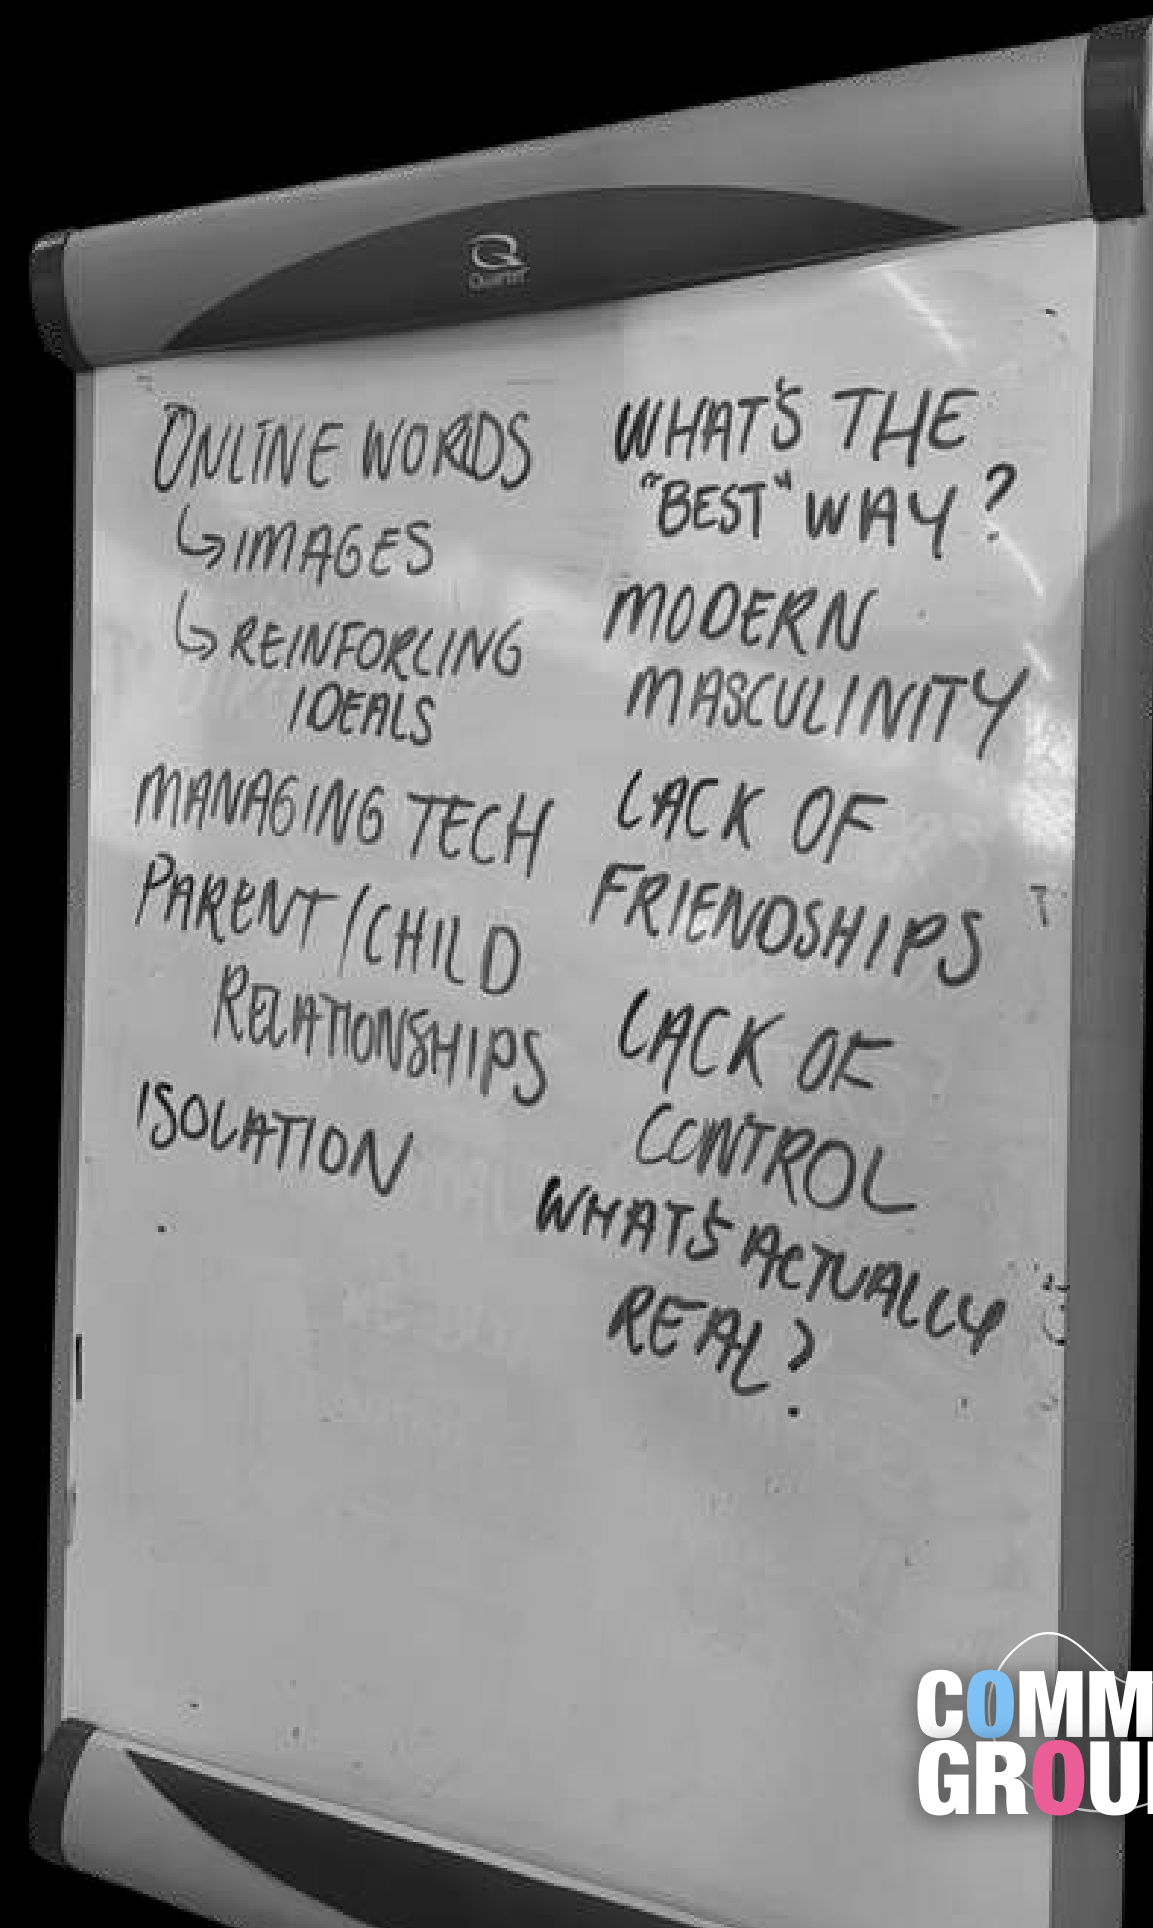 Quartet
ONLINE WORDS
↳IMAGES
↳REINFORCING
IDEALS
MANAGING TECH
PARENT/CHILD
RELATIONSHIPS
ISOLATION
WHAT'S THE
"BEST" WAY?
MODERN
MASCULINITY
LACK OF
FRIENDSHIPS
LACK OF
CONTROL
WHAT'S ACTUALLY
REAL?
COMM
GROU